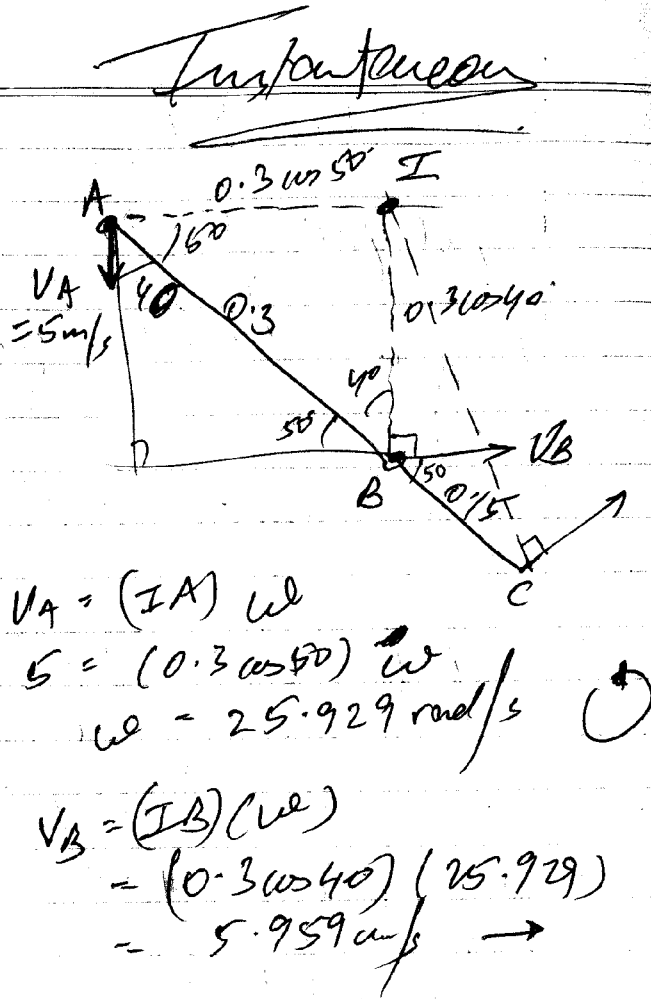 Instantaneous
0.3 cos 50° I
A
50
V_A
= 5 m/s
40
0.3
0.3cos40°
40
50
V_B
50
B
0.15
C
V_A = (IA) ω
5 = (0.3 cos 50) ω
ω = 25.929 rad/s
V_B = (IB)(ω)
= (0.3 cos 40) (25.929)
= 5.959 m/s →